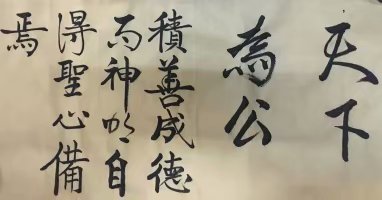 天下
為公
積善成德
而神明自
得聖心備
焉